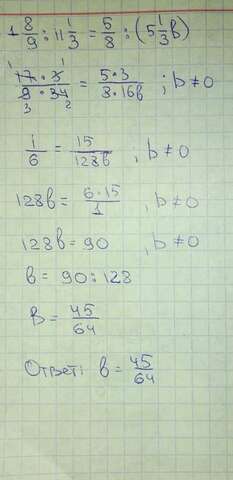 1 8/9 : 11 1/3 = 5/8 : (5 1/3 b)
17·3/9·34 = 5·3/8·16b ; b ≠ 0
1/6 = 15/128b ; b ≠ 0
128b = 6·15/1 , b ≠ 0
128b = 90 , b ≠ 0
b = 90 : 128
b = 45/64
Ответ: b = 45/64